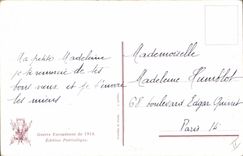 Ma petite Madeleine
je te remercie de tes
bons vœux et je t'envoie
les miens
Mademoiselle
Madeleine Humblot
68 boulevard Edgar Quinet
Paris 14
Guerre Européenne de 1914
Edition Patriotique.